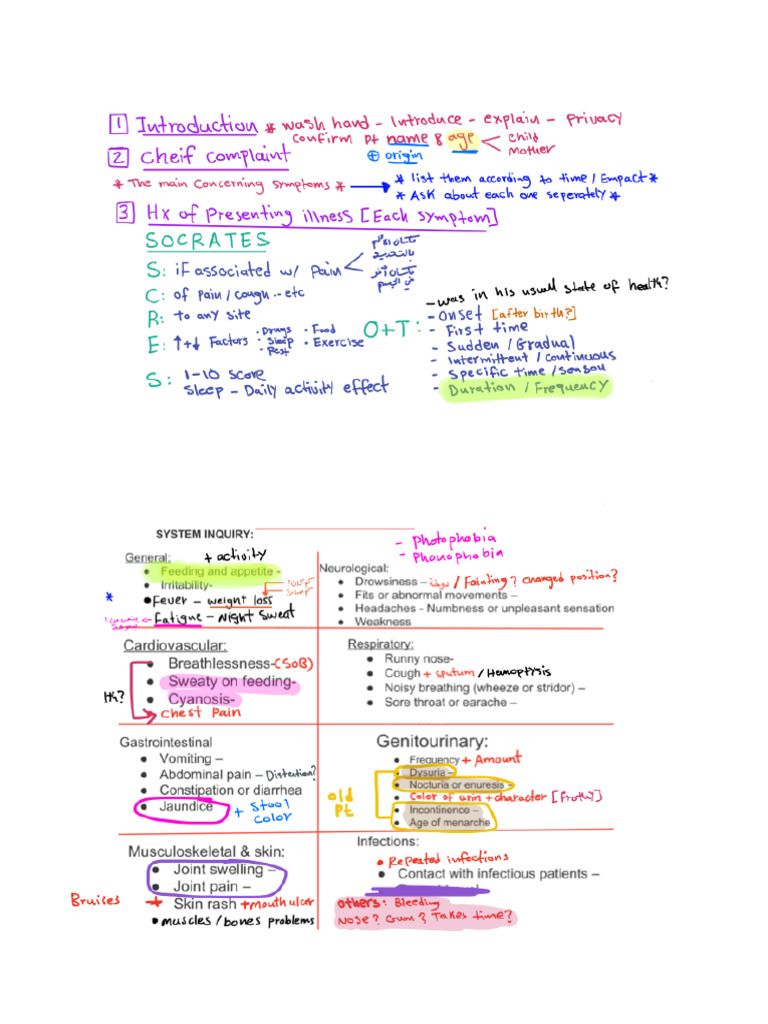 1 Introduction * wash hand - Introduce - explain - Privacy
confirm pt name & age < child
mother
+ origin
2 Cheif complaint
* The main concerning symptoms * → * List them according to time / Empact *
* ASK about each one seperately *
3 Hx of Presenting illness [Each symptom]
SOCRATES
S: if associated w/ Pain < مكان الألم بالتحديد
مكان آخر في الجسم
C: of pain / cough ... etc
R: to any site
E: ↑+↓ Factors • Drugs • Sleep • Rest • Food • Exercise
S: 1-10 score
Sleep - Daily activity effect
O+T:
- was in his usual state of health?
- onset [after birth?]
- First time
- Sudden / Gradual
- Intermittent / continuous
- Specific time / season
- Duration / Frequency
SYSTEM INQUIRY:
General: + activity
• Feeding and appetite -
• Irritability-
* • Fever - weight loss
Fatigue - Night sweat
- Photophobia
- Phonophobia
Neurological:
• Drowsiness - دوخة / Fainting? changed position?
• Fits or abnormal movements –
• Headaches - Numbness or unpleasant sensation
• Weakness
Cardiovascular:
• Breathlessness- (SOB)
• Sweaty on feeding-
• Cyanosis-
Hx?
chest Pain
Respiratory:
• Runny nose-
• Cough + sputum / Hemoptysis
• Noisy breathing (wheeze or stridor) –
• Sore throat or earache –
Gastrointestinal
• Vomiting –
• Abdominal pain – Distention?
• Constipation or diarrhea
• Jaundice + Stool color
Genitourinary:
• Frequency + Amount
• Dysuria –
• Nocturia or enuresis –
• Color of urin + character [frothy]
• Incontinence –
• Age of menarche
old pt
Musculoskeletal & skin:
• Joint swelling –
• Joint pain –
Bruises + Skin rash + mouth ulcer
• muscles / bones problems
Infections:
• Repeated infections
• Contact with infectious patients –
others: Bleeding
Nose? Gum? Takes time?